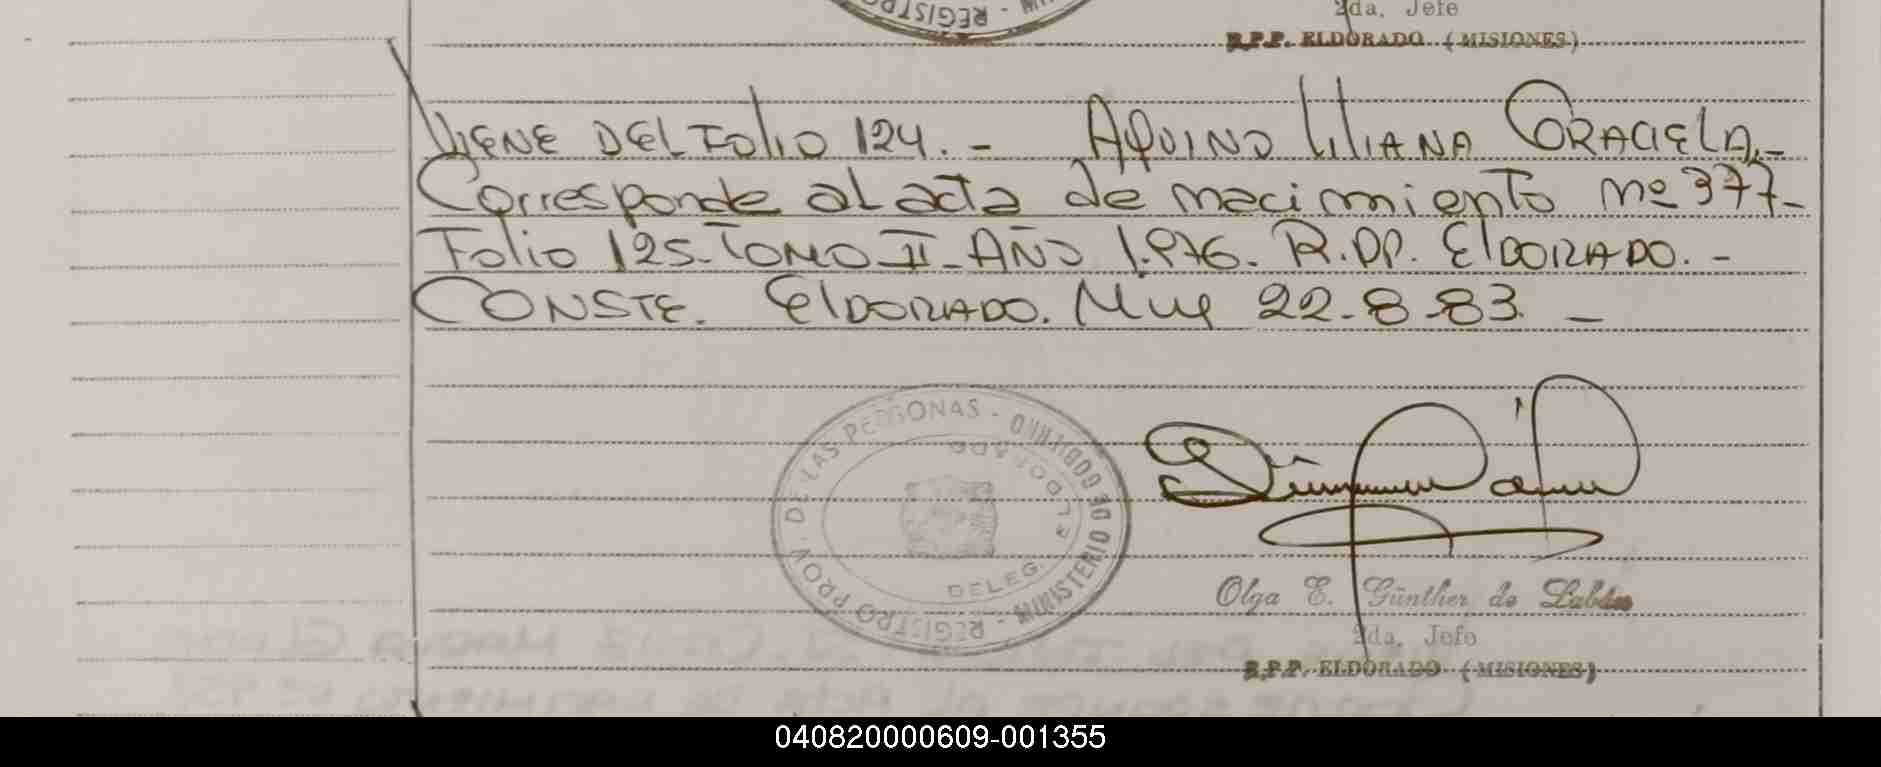 2da. Jefe
R.P.P. ELDORADO (MISIONES)
VIENE DEL FOLIO 124. - AQUINO LILIANA GRACIELA.-
Corresponde al acta de nacimiento nº 377-
Folio 125-TOMO II-AÑO 1.976. R.PP. ELDORADO. -
CONSTE. ELDORADO. Mnes 22-8-83. -
REGISTRO PROV. DE LAS PERSONAS - MINISTERIO DE GOBIERNO
DELEG. ELDORADO
Olga E. Günther de
2da. Jefe
R.P.P. ELDORADO (MISIONES)
040820000609-001355